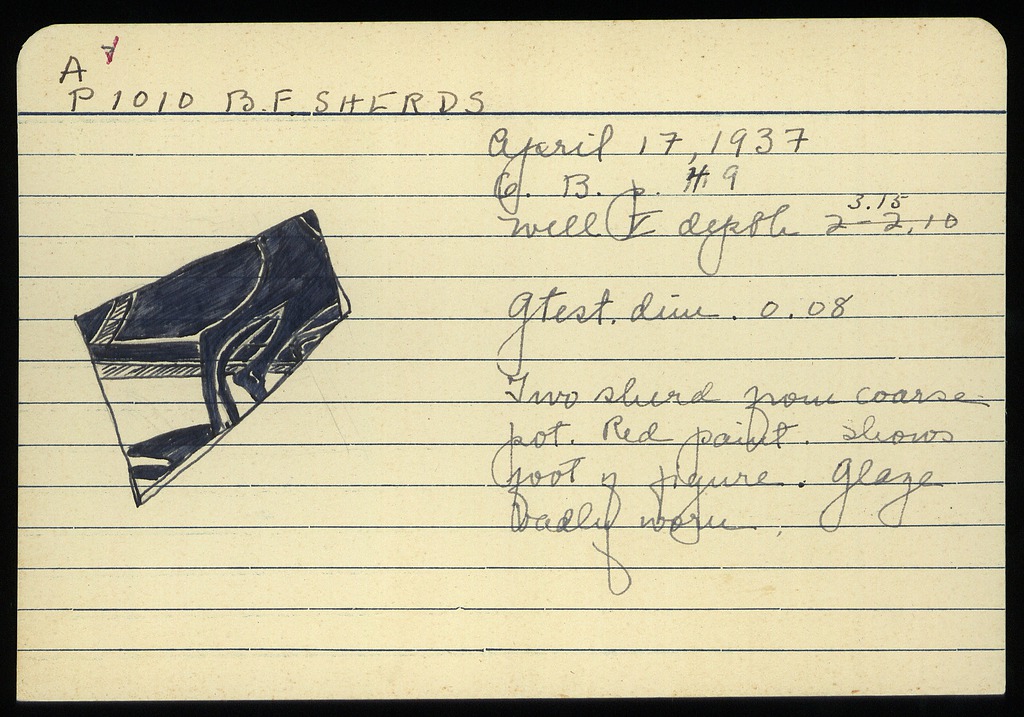 A
P 1010 B.F. SHERDS
April 17, 1937
B. p. 9
Well V depth 3.15
2-2.10
Gtest. dim. 0.08
Two sherd from coarse
pot. Red paint. Shows
foot of figure. Glaze
badly worn.